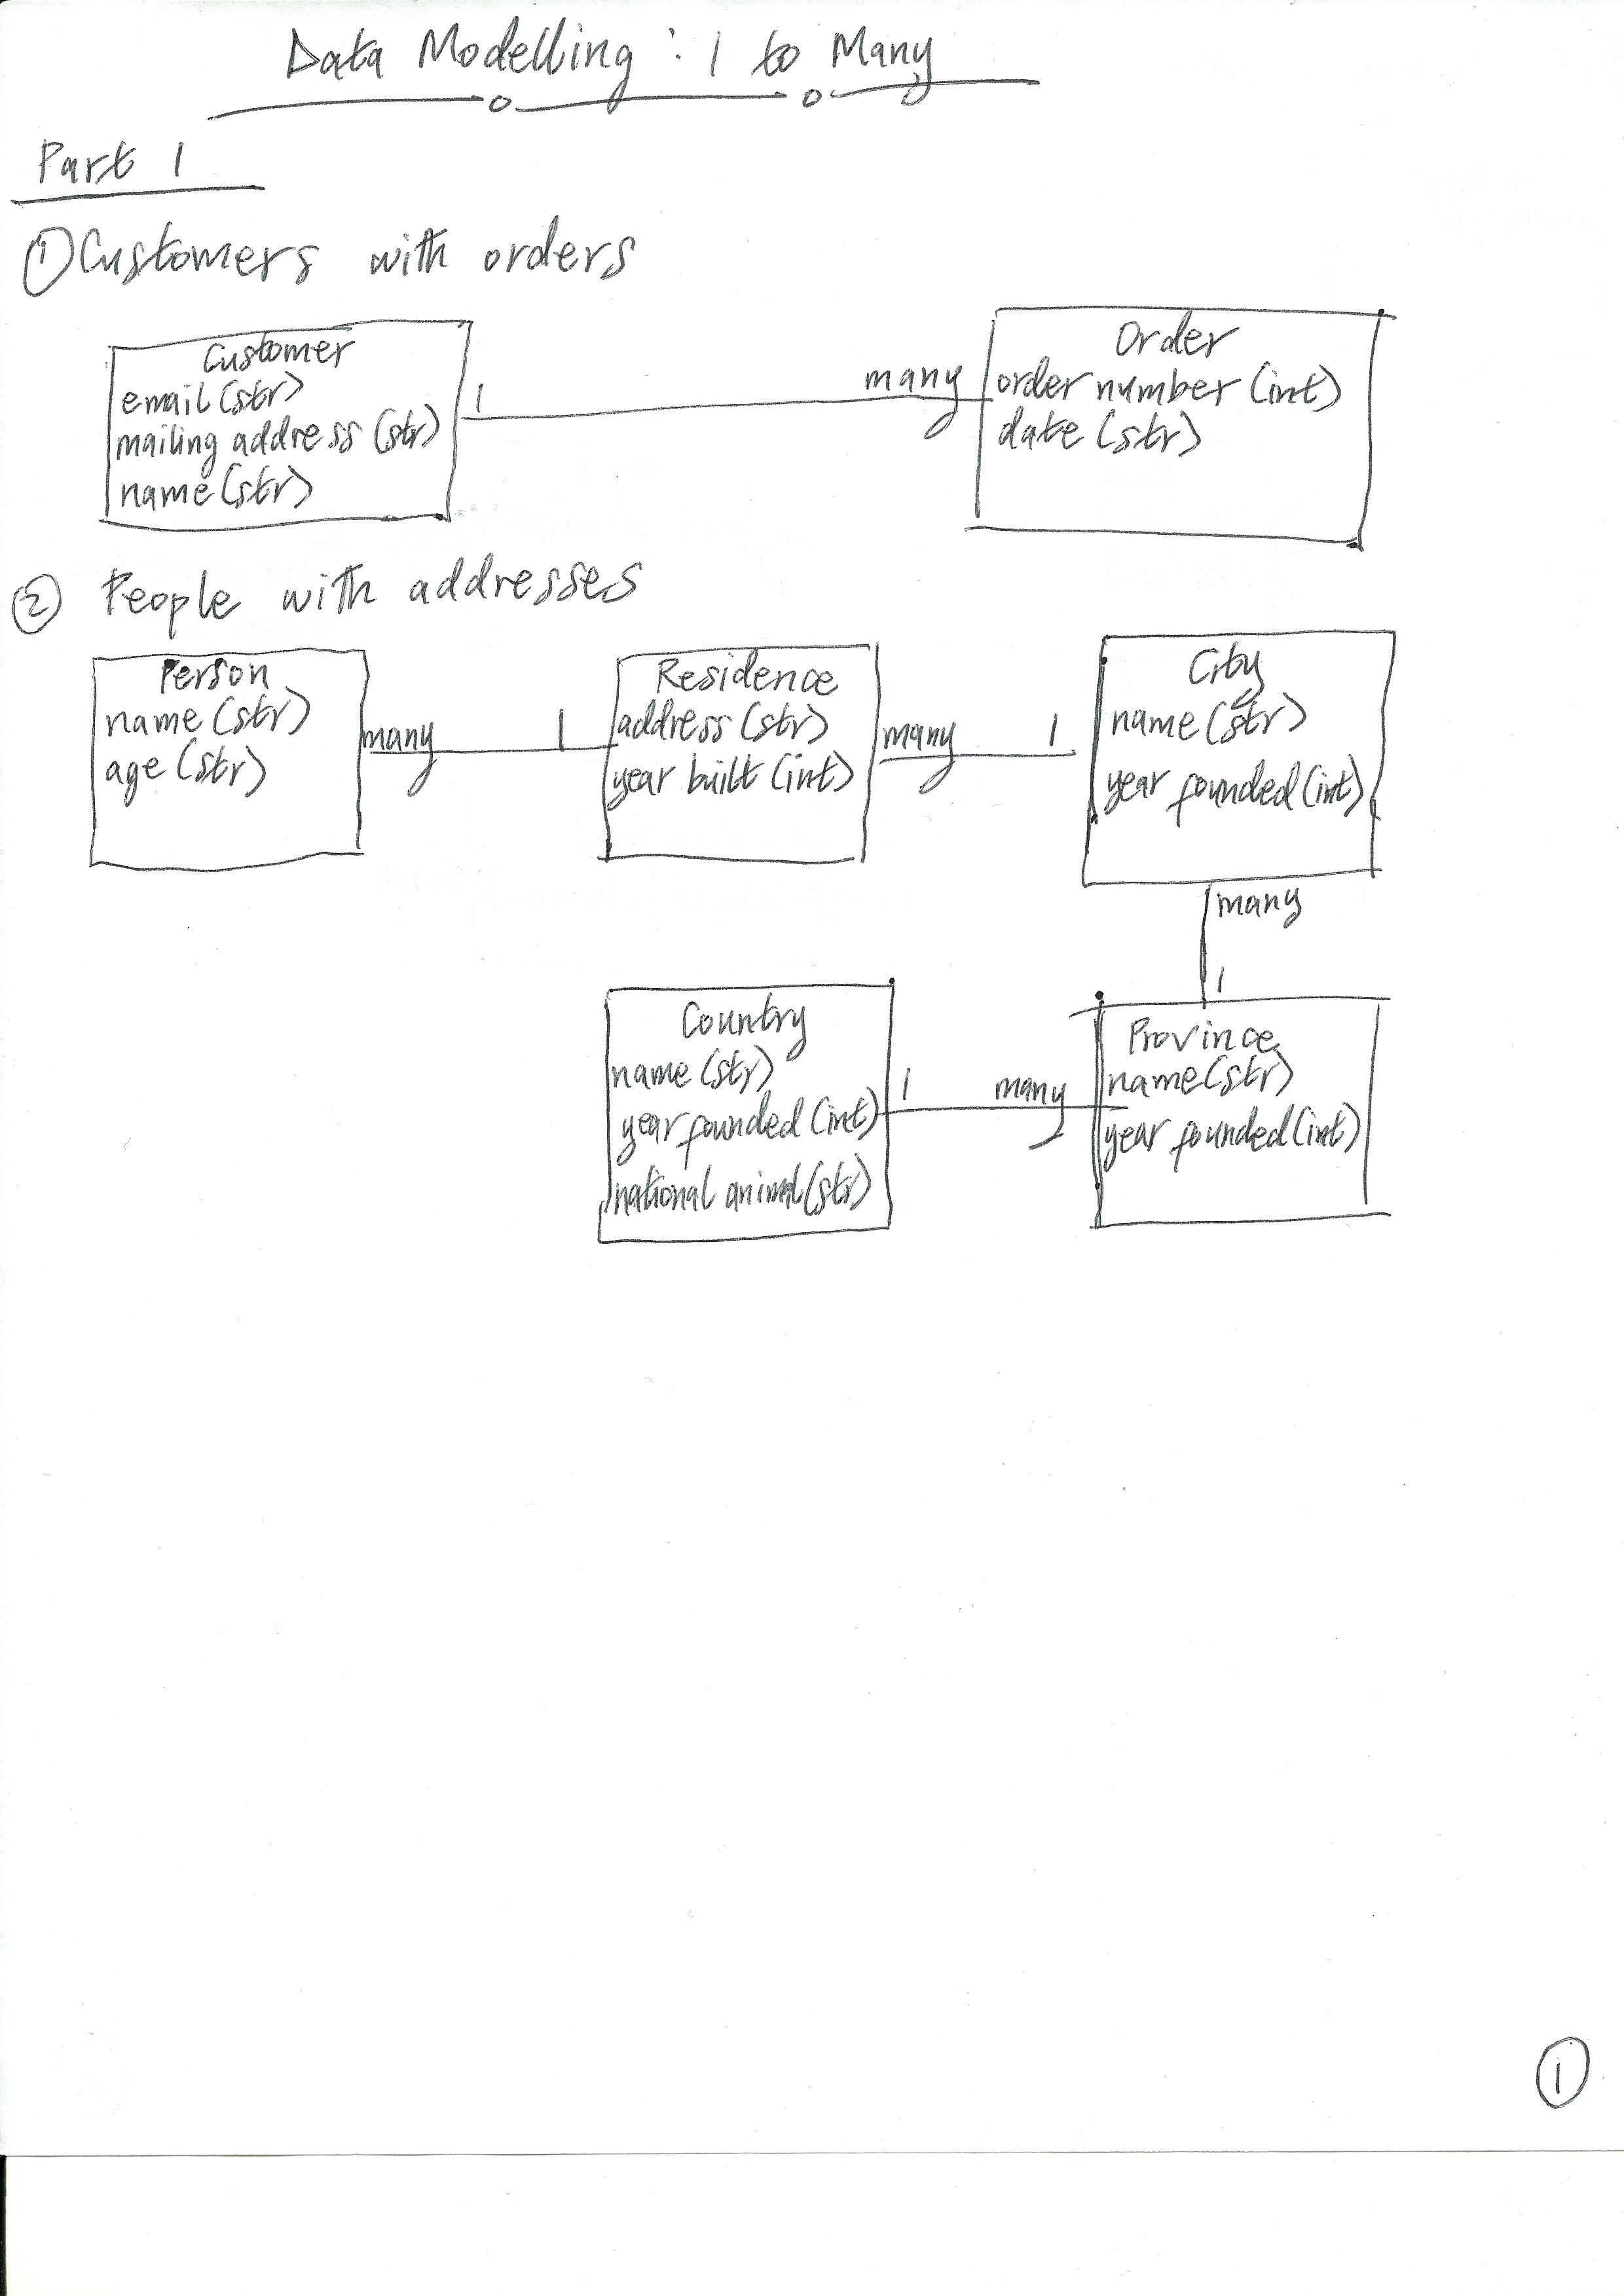 Data Modelling : 1 to Many
Part 1
① Customers with orders
Customer
email (str)
mailing address (str)
name (str)
1
many
Order
order number (int)
date (str)
② People with addresses
Person
name (str)
age (str)
many
1
Residence
address (str)
year built (int)
many
1
City
name (str)
year founded (int)
many
1
Country
name (str)
year founded (int)
national animal (str)
1
many
Province
name (str)
year founded (int)
①